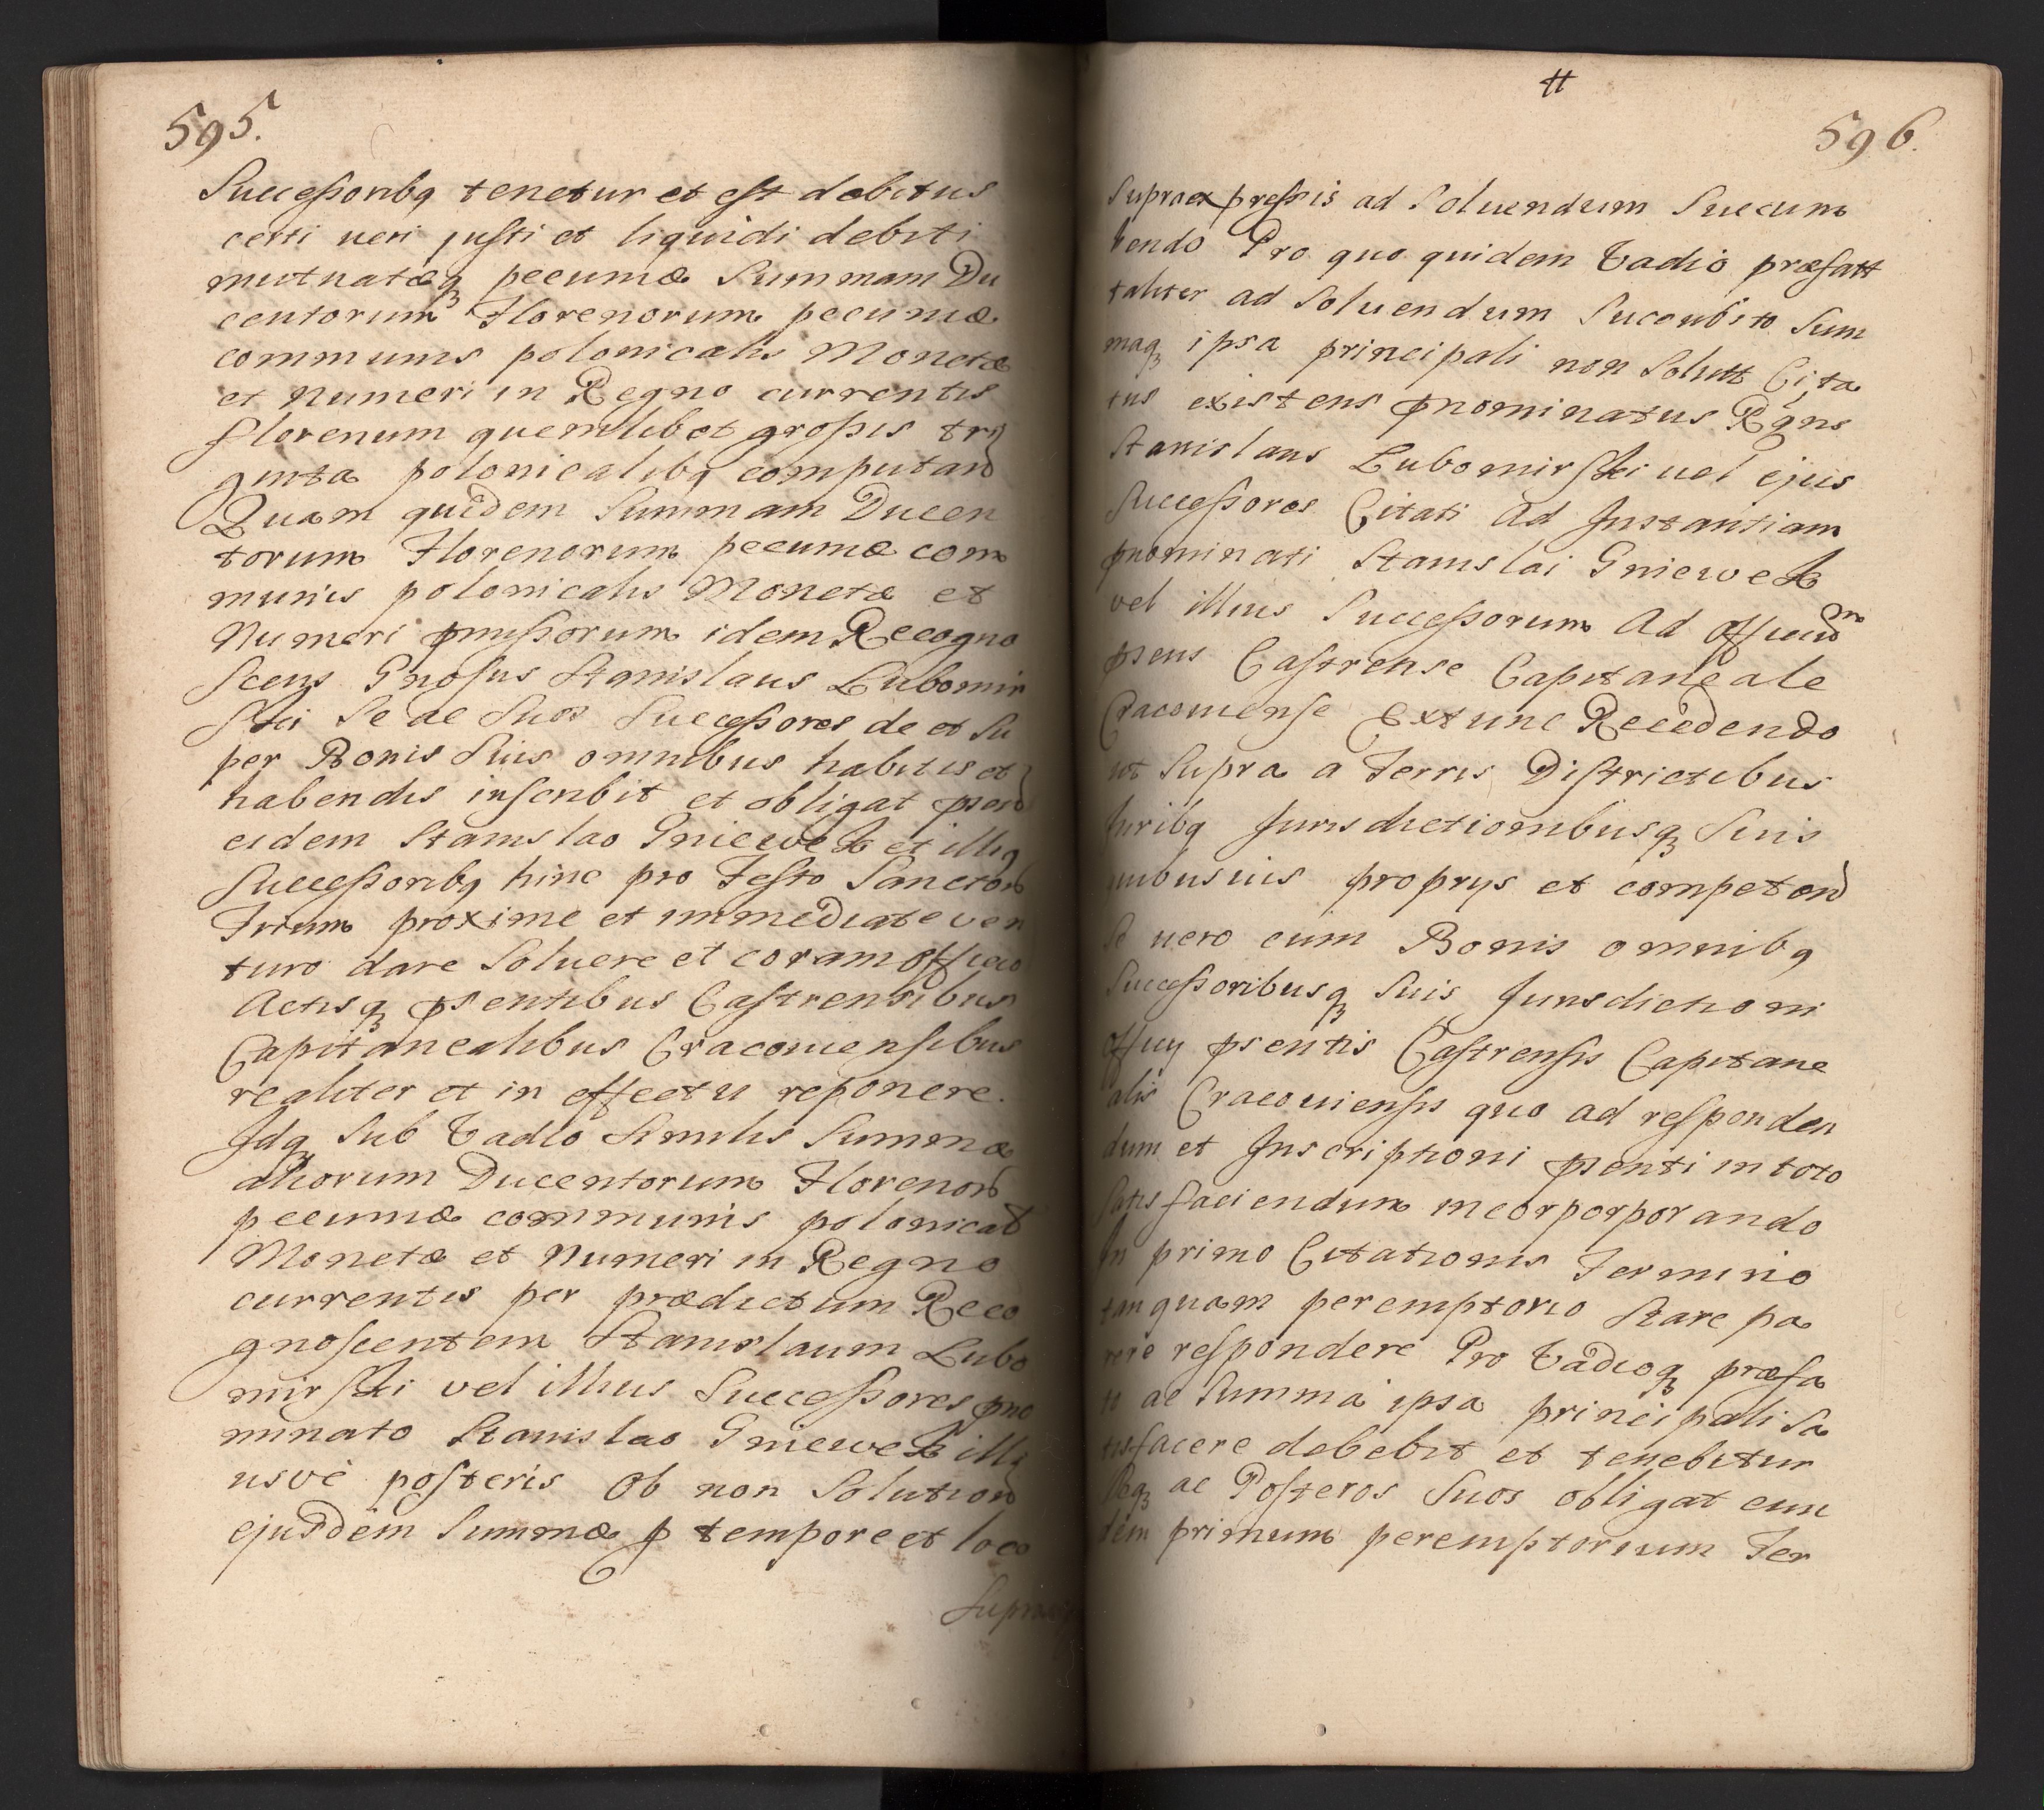 595.
Successoribq tenetur et est debitus
certi veri justi et liquidi debiti
mutuatæq pecuniæ Summam Du
centorum Florenorum pecuniæ
communis polonicalis Monetæ
et Numeri in Regno currentis
florenum quemlibet grossis tri
ginta polonicalibq computand
Quam quidem Summam Ducen
torum Florenorum pecuniæ com
munis polonicalis Monetæ et
Numeri pmissorum idem Recogno
scens Gnosus Stanislaus Lubomir
ski Se ac Suos Successores de et Su
per Bonis Suis omnibus habitis et
habendis inscribit et obligat
eidem Stanislao Gniewek et illiq
Successoribq hinc pro Festo Sanctor
Trium proxime et immediate ven
turo dare Soluere et coram Officio
Actisq psentibus Castrensibus
Capitanealibus Cracouiensibus
realiter et in effectu reponere.
Idq Sub Vadio Similis Summæ
aliorum Ducentorum Florenor
pecuniæ communis polonical
Monetæ et Numeri in Regno
currentis per prædictum Reco
gnoscentem Stanislaum Lubo
mirski vel illius Successores pno
minato Stanislao Gniewek illi
usve posteris Ob non Solution
ejusdem Summæ p tempore et loco
tt
596.
Supraexpressis ad Soluendum Succum
bendo Pro quo quidem Vadio præfatt
taliter ad Soluendum Succubito Sum
maq ipsa principali non Solutt Cita
tus existens pnominatus Rgns
Stanislaus Lubomirski uel ejus
Successores Citati Ad Instantiam
pnominati Stanislai Gniewek
vel illius Successorum Ad Officium
psens Castrense Capitaneale
Cracouiense Extunc Recedendo
ut Supra a Terris Districtibus
Juribq Jurisdictionibusq Suis
quibusuis proprys et competend
Se uero cum Bonis omnibq
Successoribusq Suis Jurisdictioni
Officy psentis Castrensis Capitane
alis Cracouiensis quo ad responden
dum et Inscriptioni psenti in toto
Satisfaciendum incorporporando
In primo Citationis Termino
tanquam peremptorio Stare pa
rere respondere Pro Vadioq præfa
to ac Summa ipsa principali Sa
tisfacere debebit et tenebitur
Seq ac Posteros Suos obligat eun
dem primum peremptorium Ter